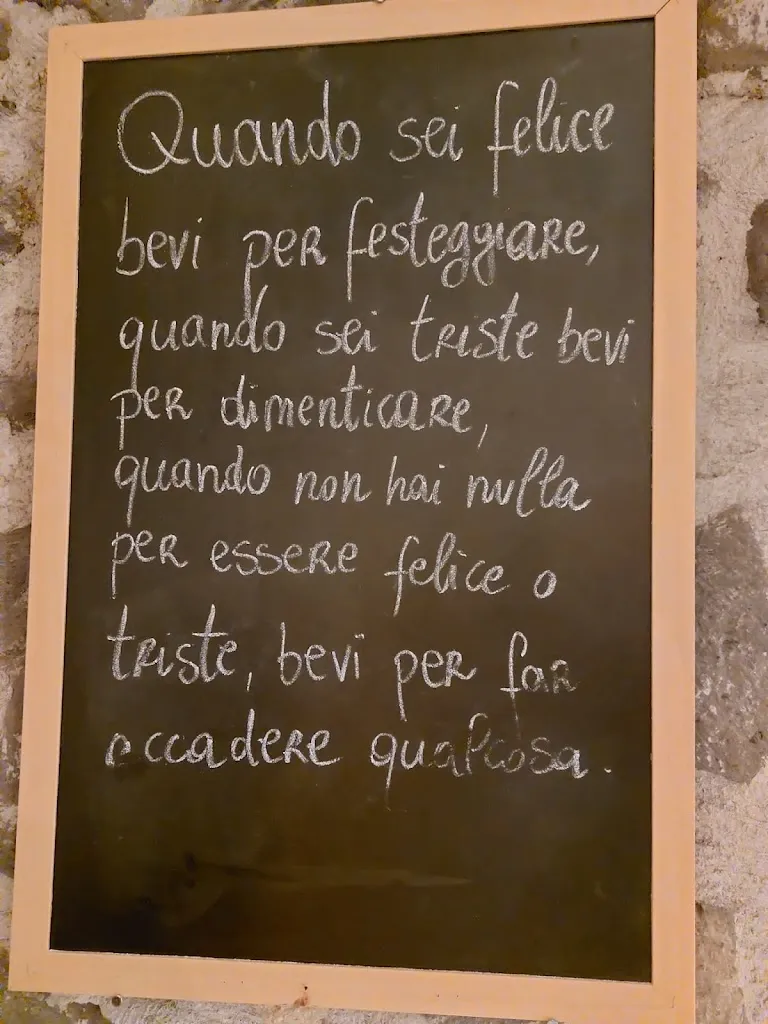 Quando sei felice
bevi per festeggiare,
quando sei triste bevi
per dimenticare,
quando non hai nulla
per essere felice o
triste, bevi per far
accadere qualcosa.